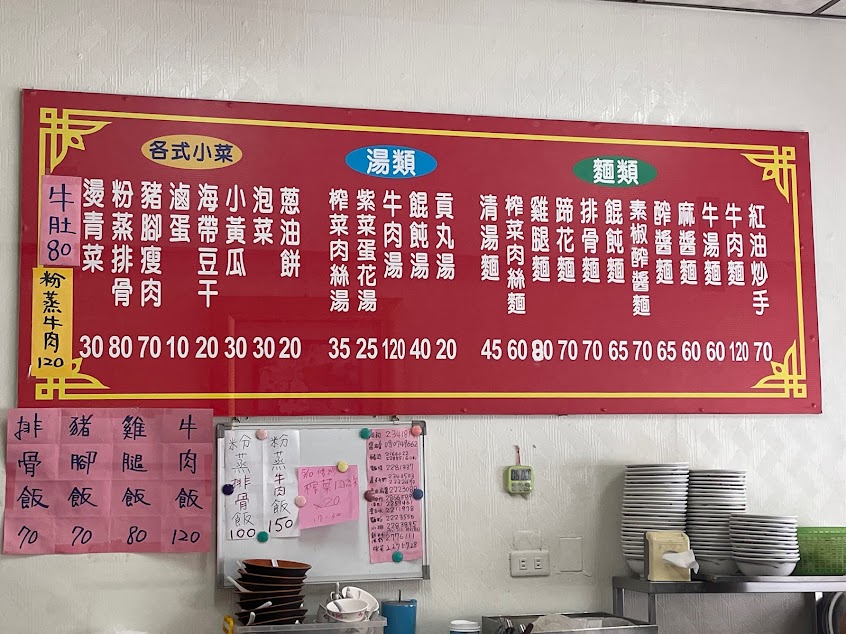 麵類
紅油炒手 70
牛肉麵 120
牛湯麵 60
麻醬麵 60
酢醬麵 65
素椒酢醬麵 70
餛飩麵 65
排骨麵 70
蹄花麵 70
雞腿麵 80
榨菜肉絲麵 60
清湯麵 45
湯類
貢丸湯 20
餛飩湯 40
牛肉湯 120
紫菜蛋花湯 25
榨菜肉絲湯 35
各式小菜
蔥油餅 20
泡菜 30
小黃瓜 30
海帶豆干 20
滷蛋 10
豬腳瘦肉 70
粉蒸排骨 80
燙青菜 30
牛肚 80
粉蒸牛肉 120
牛肉飯 120
雞腿飯 80
豬腳飯 70
排骨飯 70
粉蒸牛肉飯 150
粉蒸排骨飯 100